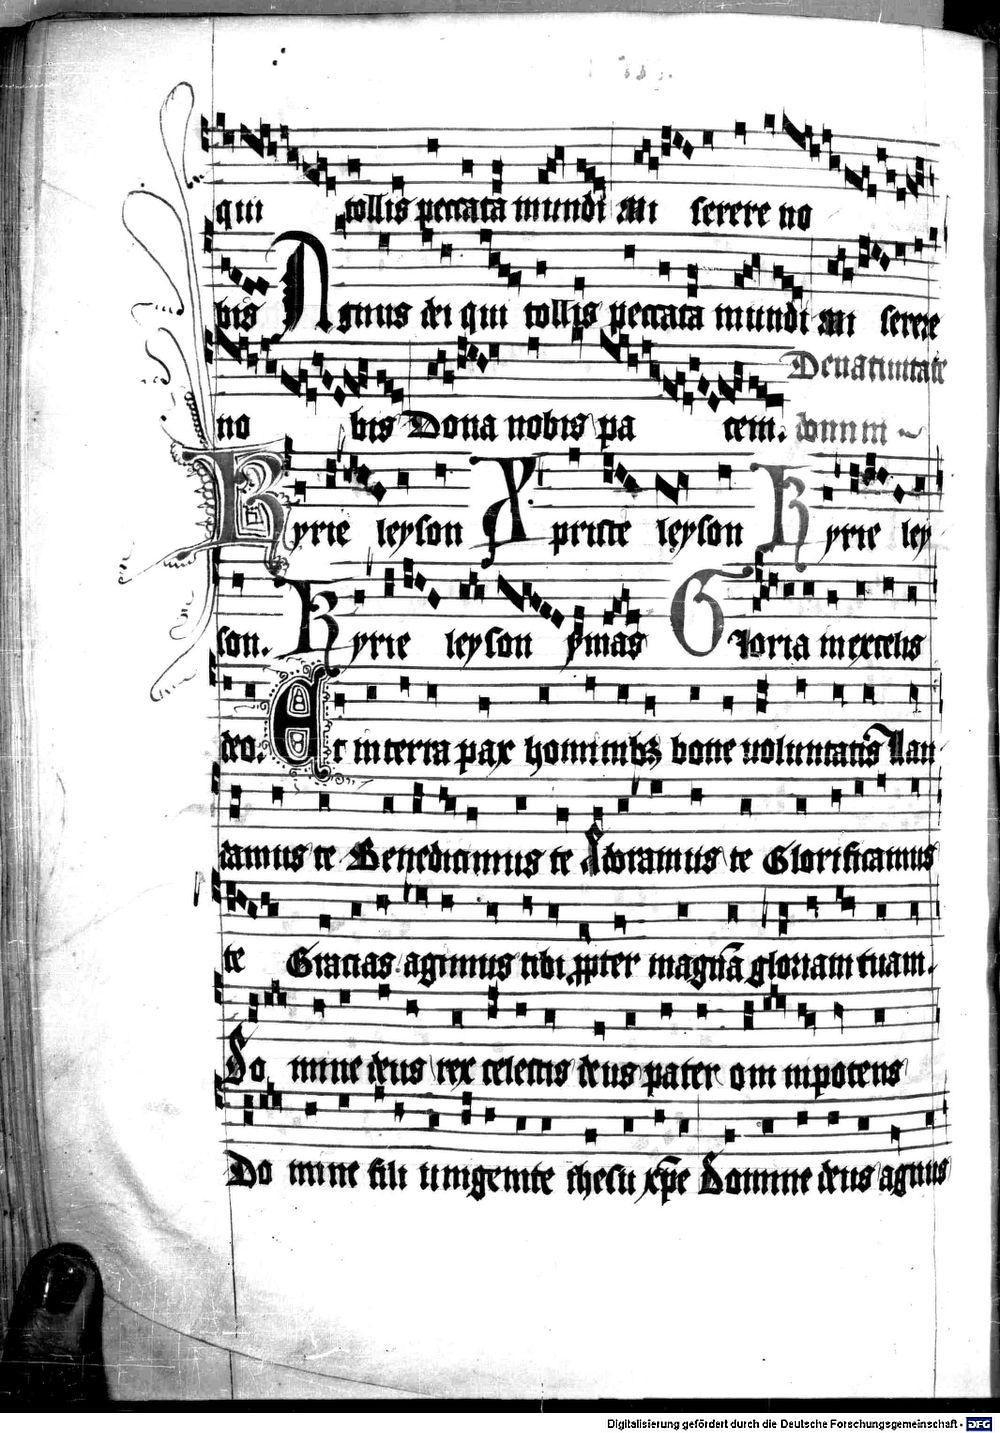 qui tollis peccata mundi Mi serere no
bis Agnus dei qui tollis peccata mundi Mi serere
De natiuitate
no bis Dona nobis pa cem. domini
Kyrie leyson Xpriste leyson Kyrie ley
son. Kyrie leyson ymas Gloria in excelsis
deo. Et in terra pax hominibꝫ bone uoluntatis Lau
damus te Benedicimus te Adoramus te Glorificamus
te Gracias agimus tibi ꝓpter magnā gloriam tuam.
Do mine deus rex celestis deus pater om nipotens
Do mine fili unigenite ihesu xp̄e Domine deus agnus
Digitalisierung gefördert durch die Deutsche Forschungsgemeinschaft - DFG